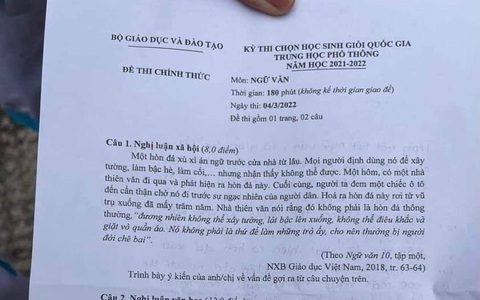 BỘ GIÁO DỤC VÀ ĐÀO TẠO
KỲ THI CHỌN HỌC SINH GIỎI QUỐC GIA
TRUNG HỌC PHỔ THÔNG
NĂM HỌC 2021-2022
ĐỀ THI CHÍNH THỨC
Môn: NGỮ VĂN
Thời gian: 180 phút (không kể thời gian giao đề)
Ngày thi: 04/3/2022
Đề thi gồm 01 trang, 02 câu
Câu 1. Nghị luận xã hội (8,0 điểm)
Một hòn đá xù xì án ngữ trước cửa nhà từ lâu. Mọi người định dùng nó để xây
tường, làm bậc hè, làm cối,... nhưng nhận thấy không thể được. Một hôm, có một nhà
thiên văn đi qua và phát hiện ra hòn đá này. Cuối cùng, người ta đem một chiếc ô tô
đến cẩn thận chở nó đi trước sự ngạc nhiên của người dân. Hoá ra hòn đá này rơi từ vũ
trụ xuống đã mấy trăm năm. Nhà thiên văn nói rằng đó không phải là hòn đá thông
thường, "đương nhiên không thể xây tường, lát bậc lên xuống, không thể điêu khắc và
giặt vò quần áo. Nó không phải là thứ để làm những trò ấy, cho nên thường bị người
đời chê bai".
(Theo Ngữ văn 10, tập một,
NXB Giáo dục Việt Nam, 2018, tr. 63-64)
Trình bày ý kiến của anh/chị về vấn đề gợi ra từ câu chuyện trên.
Câu 2. Nghị luận văn học (12,0 điểm)